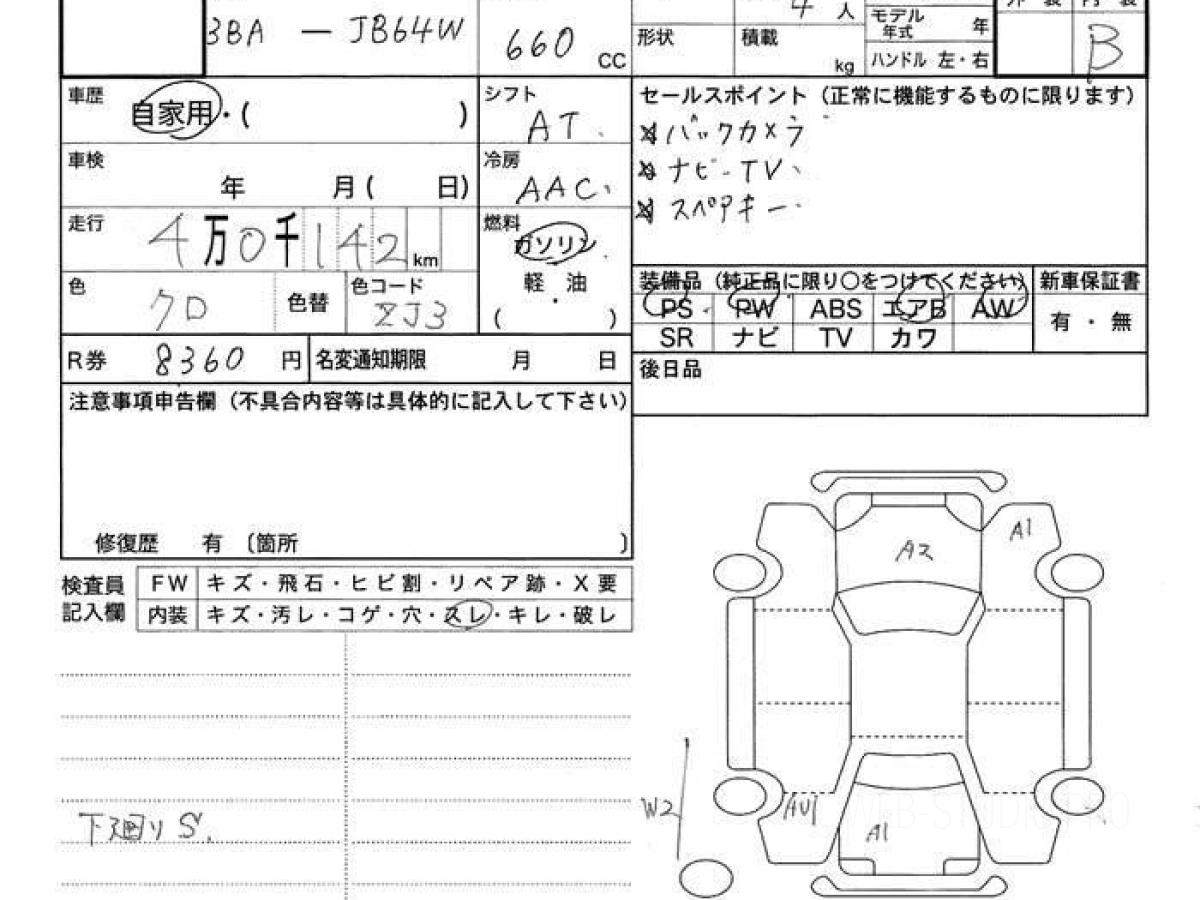 3BA — JB64W
660 CC
4 人
形状
積載 kg
モデル年式 年
ハンドル 左・右
B
車歴 自家用・( )
シフト AT
セールスポイント (正常に機能するものに限ります)
バックカメラ
ナビ-TV
スペアキー
車検 年 月( 日)
冷房 AAC
走行 4万0千142km
燃料 ガソリン
軽・油
( )
色 クロ 色替
色コード ZJ3
装備品 (純正品に限り○をつけてください)
PS PW ABS エアB AW
SR ナビ TV カワ
新車保証書
有・無
R券 8360 円
名変通知期限 月 日
後日品
注意事項申告欄 (不具合内容等は具体的に記入して下さい)
修復歴 有 〔箇所 〕
検査員記入欄
FW キズ・飛石・ヒビ割・リペア跡・X要
内装 キズ・汚レ・コゲ・穴・スレ・キレ・破レ
下廻りS.
A2
A1
W2
AU1
A1